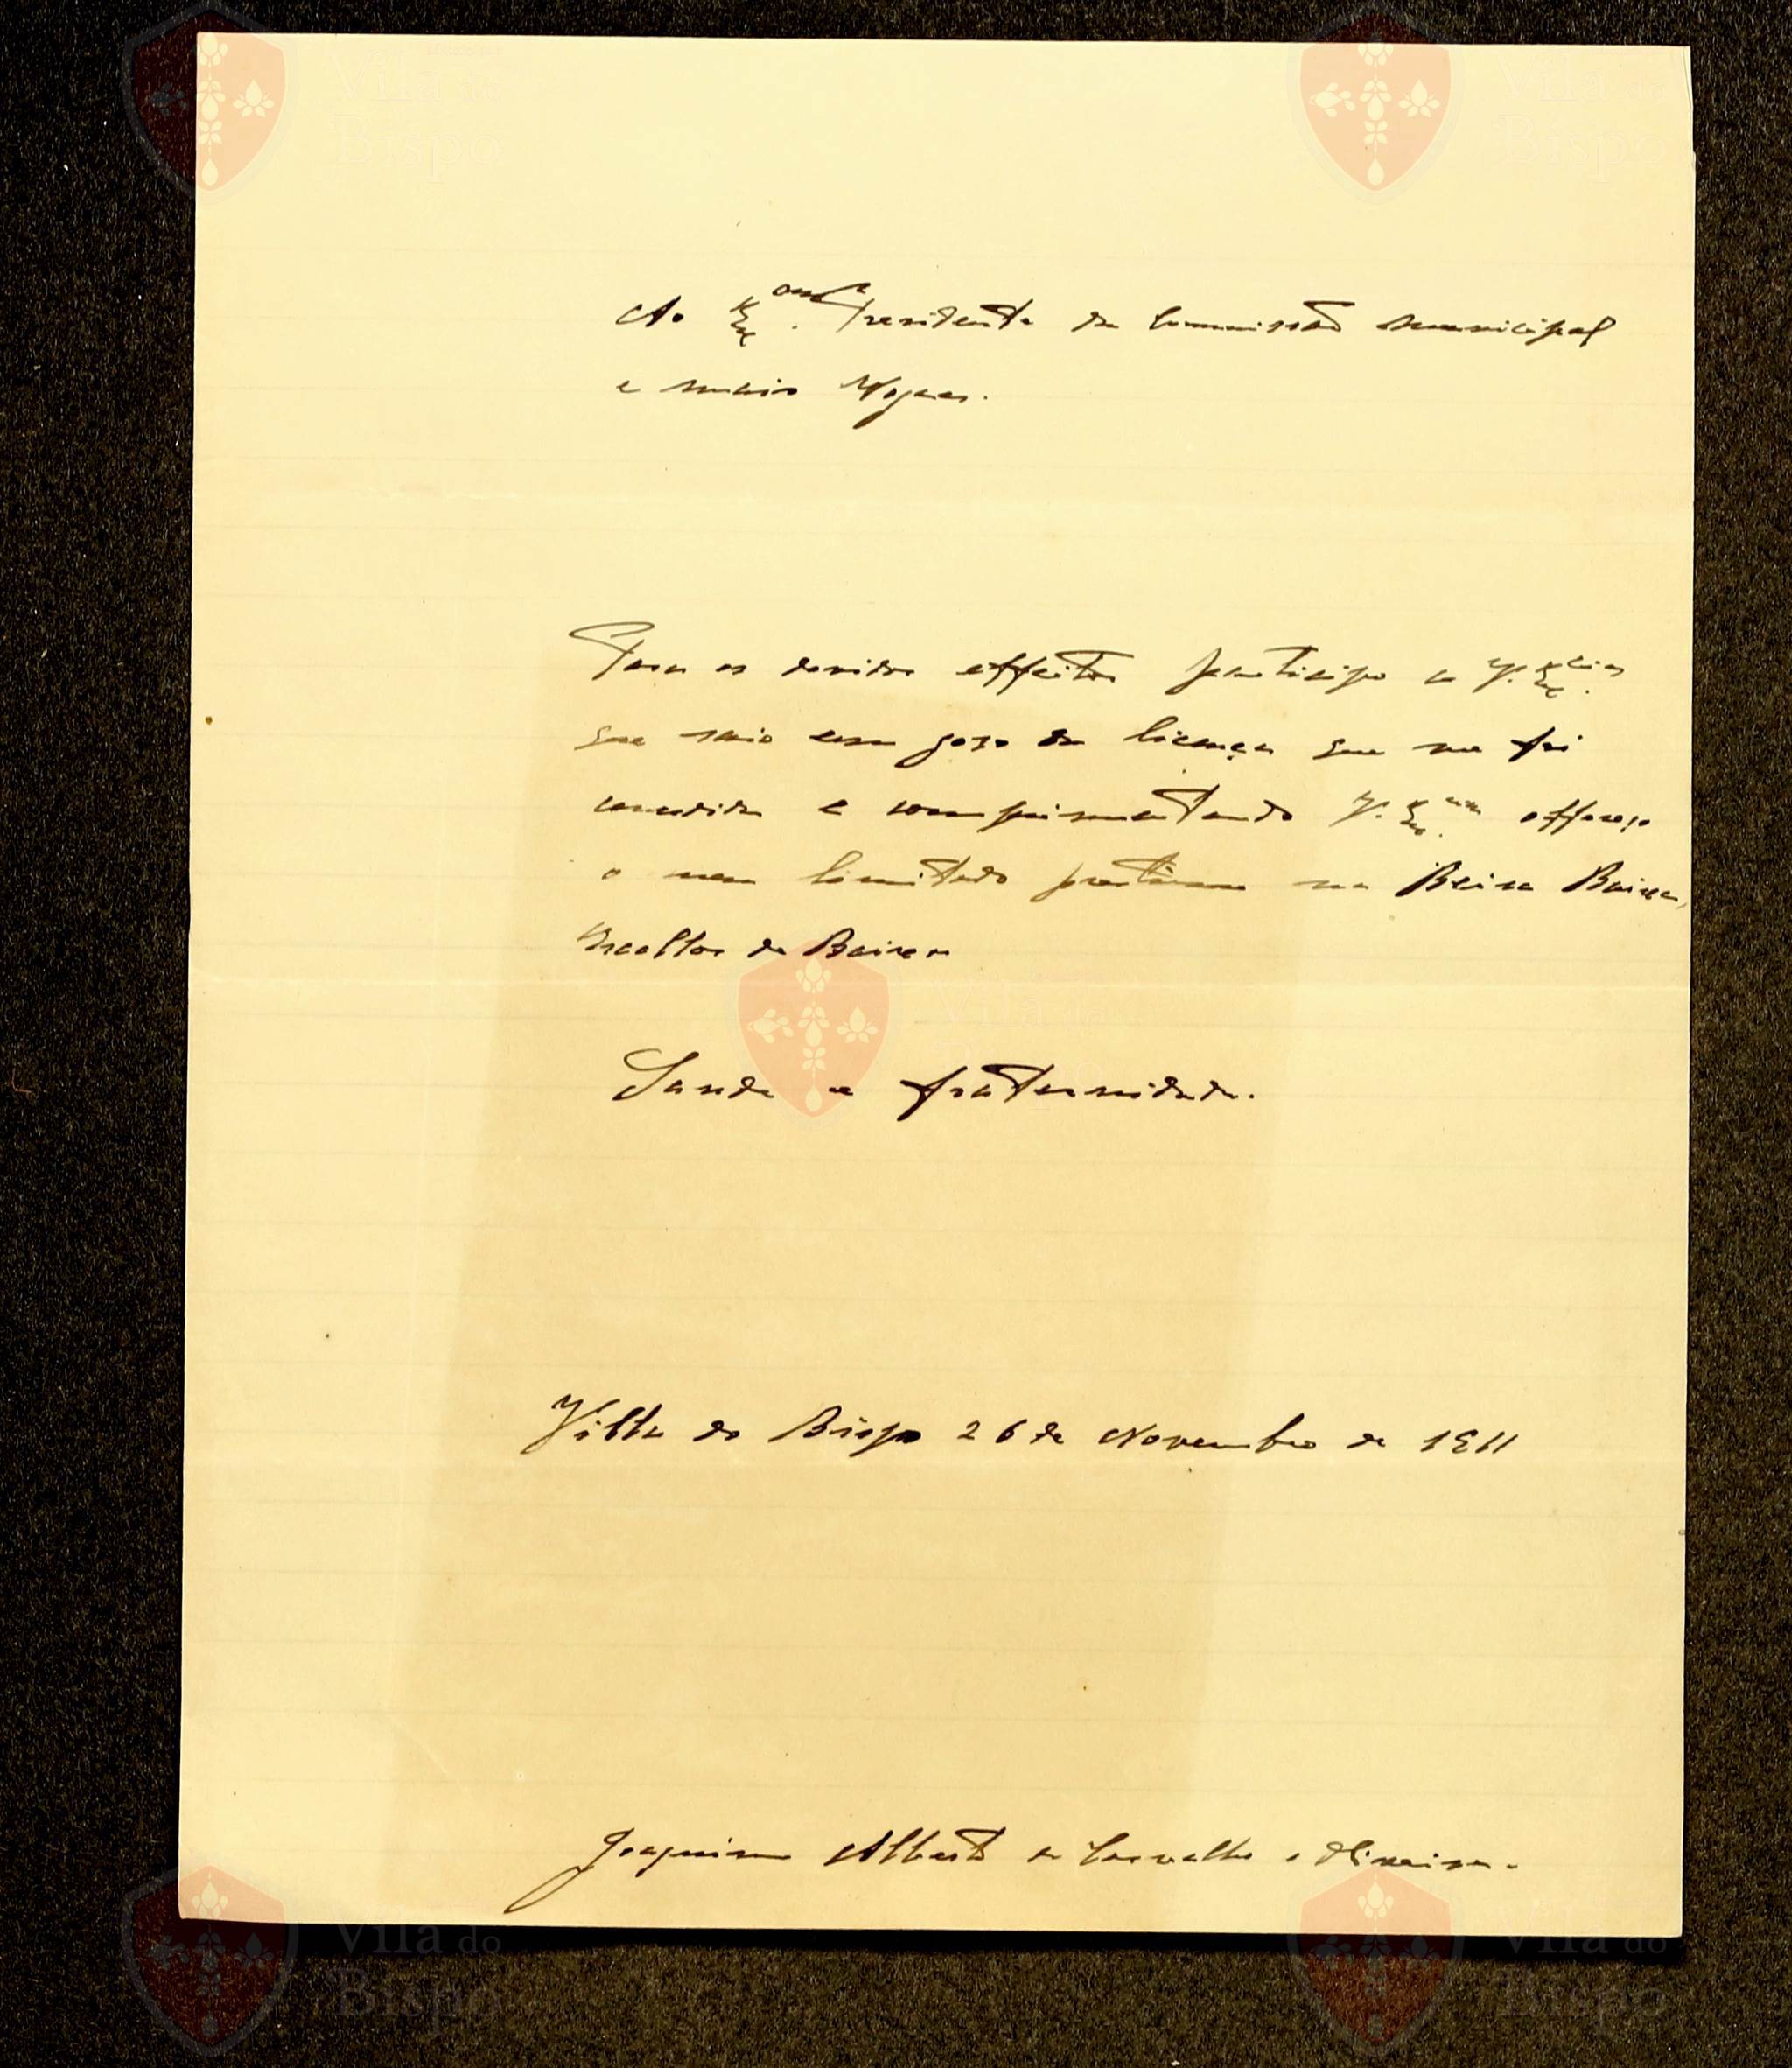 Ao Ex.mo Presidente da Commissão Municipal
e mais Vogaes.
Para os devidos effeitos participo a V. Ex.cias
que saio em goso da licença que me foi
concedida e comprimentando V. Ex.cias offereço
o meu limitado prestimo na Beira Baixa,
de Baixo
Saude e fraternidade.
Villa do Bispo 26 de Novembro de 1911
Joaquim Alberto de Carvalho e Oliveira.
Vila do
Bispo
Vila do
Bispo
Vila do
Vila do
Bispo
Vila do
Bispo